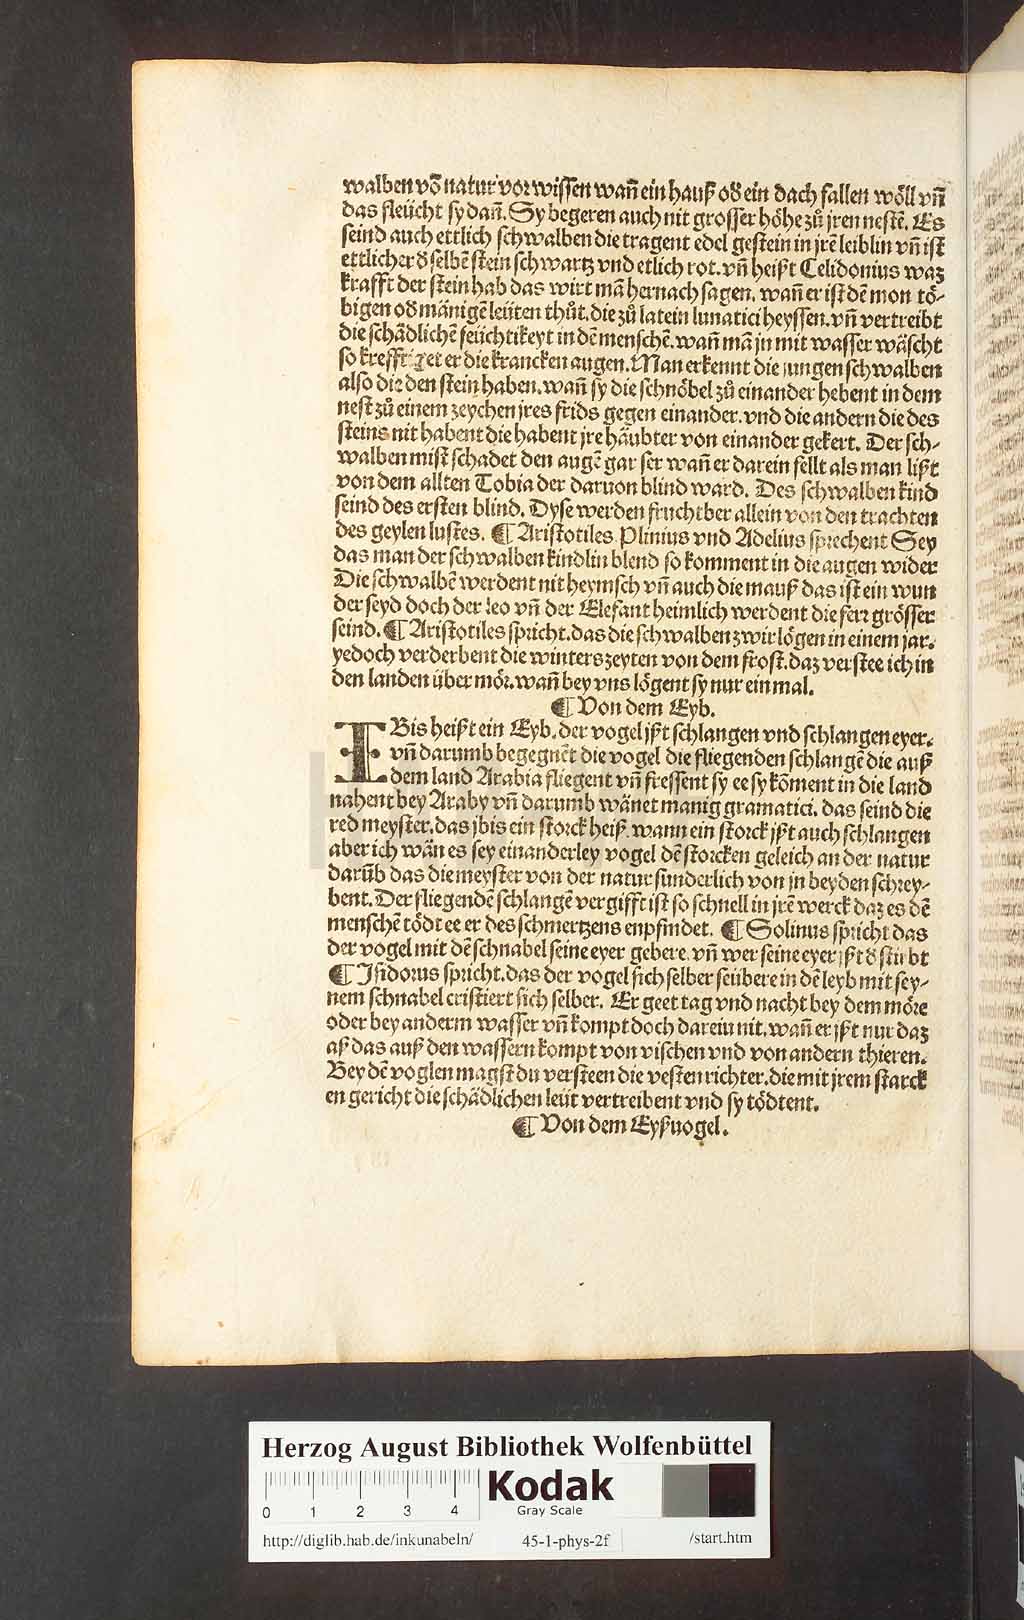 walben võ natur vor wissen wañ ein hauß oď ein dach fallen wöll vñ
das fleücht sy dañ. Sy begeren auch nit grosser höhe zů jren nestẽ. Es
seind auch ettlich schwalben die tragent edel gestein in jrẽ leiblin vñ ist
ettlicher ď selbẽ stein schwartz vnd etlich rot. vñ heißt Celidonius waz
krafft der stein hab das wirt mã hernach sagen. wañ er ist dẽ mon tö-
bigen oď mänigẽ leüten thůt. die zů latein lunatici heyssen. vñ vertreibt
die schädlichẽ feüchtikeyt in dẽ menschẽ. wañ mã jn mit wasser wäscht
so krefftiget er die krancken augen. Man erkennt die jungen schwalben
also die den stein haben. wañ sy die schnöbel zů einander hebent in dem
nest zů einem zeychen jres frids gegen einander. vnd die andern die des
steins nit habent die habent jre häubter von einander gekert. Der sch-
walben mist schadet den augẽ gar ser wañ er darein fellt als man lißt
von dem allten Tobia der daruon blind ward. Des schwalben kind
seind des ersten blind. Dyse werden fruchtber allein von den trachten
des geylen lustes. ¶ Aristotiles Plinius vnd Adelius sprechent Sey
das man der schwalben kindlin blend so komment in die augen wider
Die schwalbẽ werdent nit heymsch vñ auch die mauß das ist ein wun
der seyd doch der leo vñ der Elefant heimlich werdent die ferr grösser
seind. ¶ Aristotiles spricht. das die schwalben zwir lögen in einem jar.
yedoch verderbent die winters zeyten von dem frost. daz verstee ich in
den landen über mör. wañ bey vns lögent sy nur ein mal.
¶ Von dem Eyb.
IBis heißt ein Eyb. der vogel jßt schlangen vnd schlangen eyer.
vñ darumb begegnẽt die vogel die fliegenden schlangẽ die auß
dem land Arabia fliegent vñ fressent sy ee sy kõment in die land
nahent bey Araby vñ darumb wänet manig gramatici. das seind die
red meyster. das jbis ein storck heiß. wann ein storck jßt auch schlangen
aber ich wän es sey einanderley vogel dẽ storcken geleich an der natur
darũb das die meyster von der natur sunderlich von jn beyden schrey-
bent. Der fliegendẽ schlangẽ vergifft ist so schnell in jrẽ werck daz es dẽ
menschẽ tödt ee er des schmertzens enpfindet. ¶ Solinus spricht das
der vogel mit dẽ schnabel seine eyer gebere. vñ wer seine eyer jßt ď stirbt
¶ Isidorus spricht. das der vogel sich selber seübere in dẽ leyb mit sey-
nem schnabel cristiert sich selber. Er geet tag vnd nacht bey dem möre
oder bey anderm wasser vñ kompt doch darein nit. wañ er jßt nur daz
aß das auß den wassern kompt von vischen vnd von andern thieren.
Bey dẽ voglen magst du versteen die vesten richter. die mit jrem starck
en gericht die schädlichen leüt vertreibent vnd sy tödtent.
¶ Von dem Eyßuogel.
Herzog August Bibliothek Wolfenbüttel
0 1 2 3 4
Kodak
Gray Scale
http://diglib.hab.de/inkunabeln/ 45-1-phys-2f /start.htm